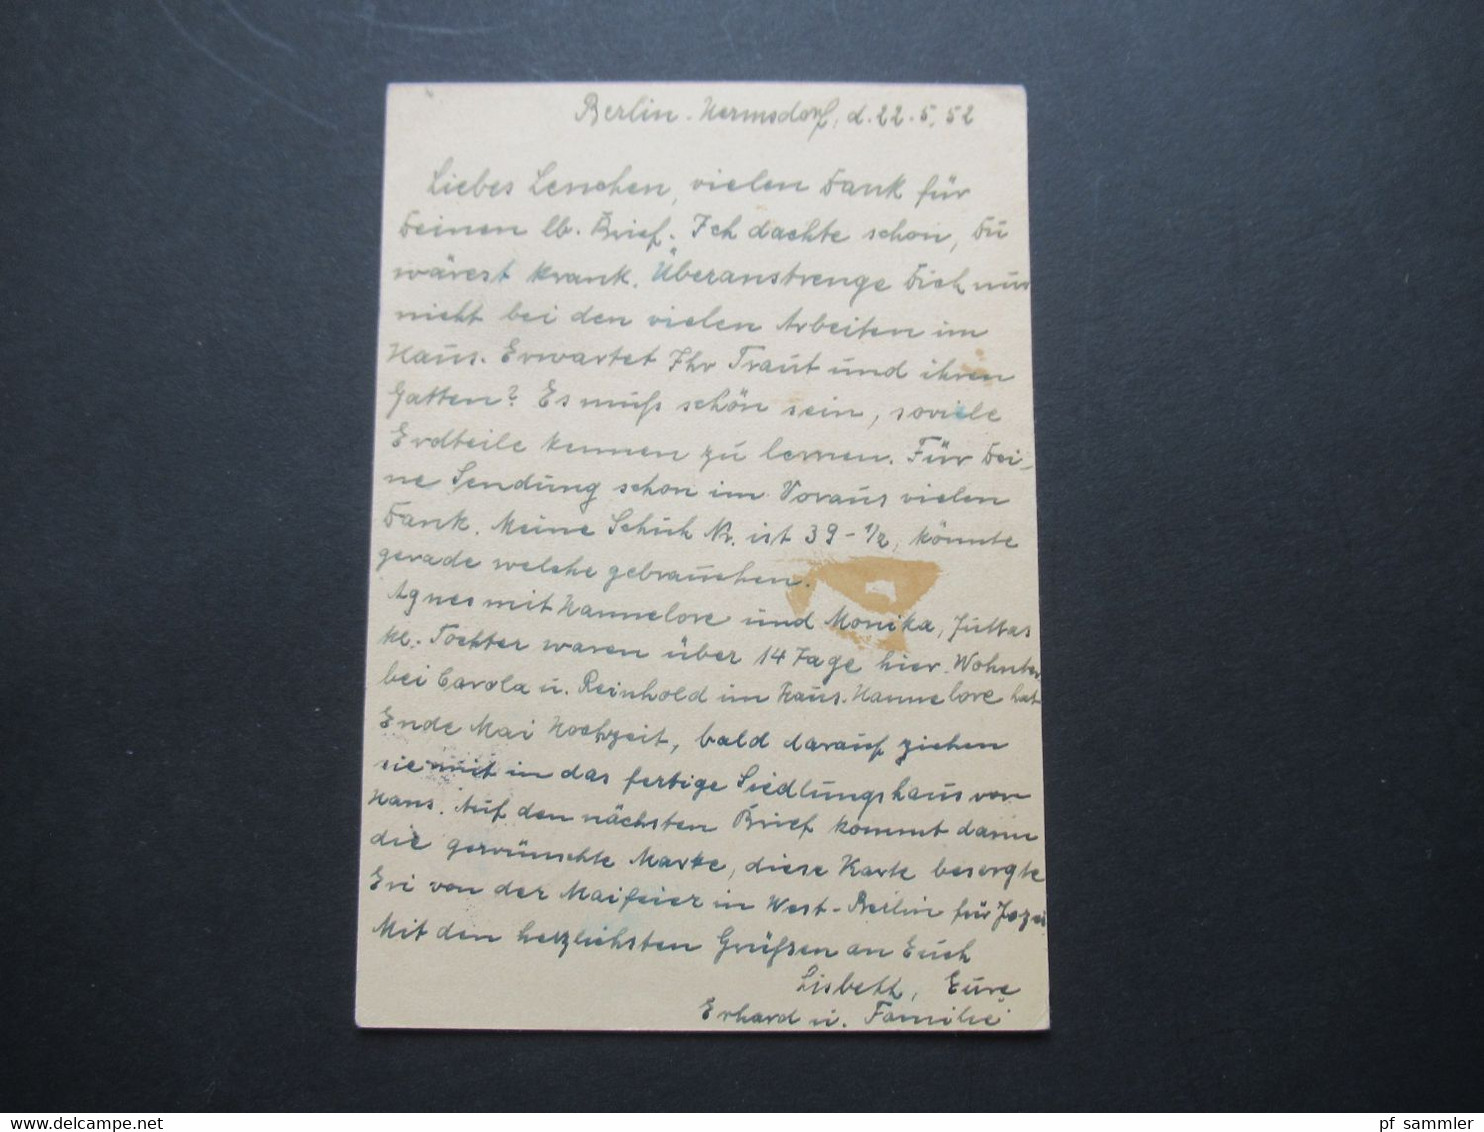 Berlin-Hermsdorf, d. 22.5.52
Liebes Lenchen, vielen Dank für
Deinen lb. Brief. Ich dachte schon, Du
wärest krank. Überanstrenge Dich nur
nicht bei den vielen Arbeiten im
Haus. Erwartet Ihr Traut und ihren
Gatten? Es muß schön sein, soviele
Erdteile kennen zu lernen. Für Dei-
ne Sendung schon im Voraus vielen
Dank. Meine Schuh Nr. ist 39-1/2, könnte
gerade welche gebrauchen.
Agnes mit Hannelore und Monika, Juttas
kl. Tochter waren über 14 Tage hier. Wohnten
bei Carola u. Reinhold im Haus. Hannelore hat
Ende Mai Hochzeit, bald darauf ziehen
sie mit in das fertige Siedlungshaus von
Hans. Auf den nächsten Brief kommt dann
die gewünschte Marke, diese Karte besorgte
Eri von der Maifeier in West-Berlin für
Mit den herzlichsten Grüßen an Euch
Lisbeth, Eure
Erhard u. Familie
delcampe.net
pf_sammler